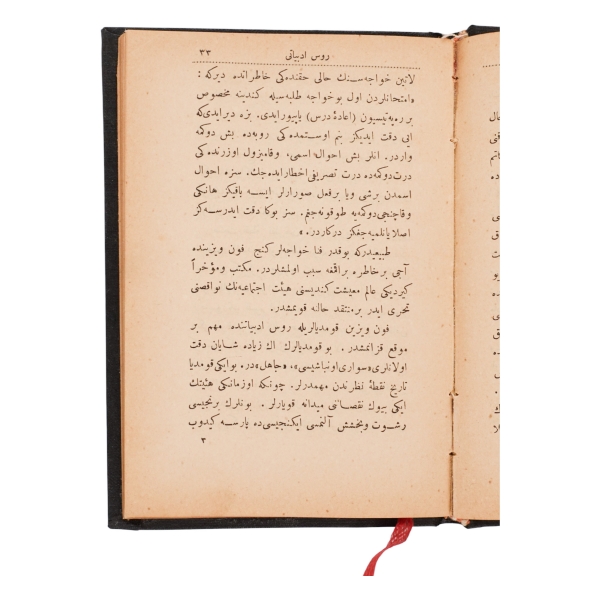 روس ادبیاتی ٣٣
لاتین خواجه‌سنك حالی حقنده‌کی خاطراتنده دیرکه :
«امتحانلردن اول بوخواجه طلبه‌سیله کندینه مخصوص
بر ره‌په‌تیسیون (اعادهٔ درس) یاپیورایدی. بزه دیرایدی‌که
ایی دقت ایدیکز بنم اوستمده‌کی روبه‌ده بش دوکمه
واردر. انلر بش احوال اسمی، وقامیزول اوزرنده‌کی
درت دوکمه‌ده درت تصریفی اخطار ایده‌جك. سزه احوال
اسمدن برشی ویا برفعل صورارلر ایسه باقیکز هانکی
وقاچنجی دوکمه‌یه طوقونه‌جغم. سز بوکا دقت ایدرسه‌کز
اصلا یا‌کلمیه‌جفکز درکاردر. »
طبیعیدرکه بوقدر فنا خواجه‌لر کنج فون ویزینده
آجی برخاطره براقمغه سبب اولمشلردر. مکتب ومؤخراً
کیردیکی عالم معیشت کندیسنی هیئت اجتماعیه‌نك نواقصنی
تحری ایدر برمنتقد حالنه قویمشدر.
فون ویزین قومدیالریله روس ادبیاتنده مهم بر
موقع قزانمشدر. بو قومدیالرك اك زیاده شایان دقت
اولانلری «سواری اونباشیسی»، «جاهل» در. بوایکی قومدیا
تاریخ نقطهٔ نظرندن مهمدرلر. چونکه اوزمانکی هیئتك
ایکی بیوك نقصانی میدانه قویارلر. بونلرك برنجیسی
رشوت وبخشش آلنمسی ایکنجیسی‌ده پارسه کیدوب
٣